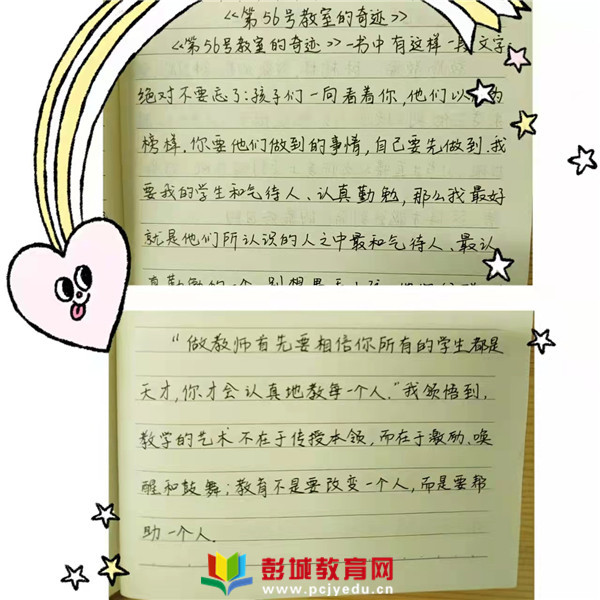 《第56号教室的奇迹》
《第56号教室的奇迹》一书中有这样一段文字
绝对不要忘了:孩子们一向看着你,他们以
榜样.你要他们做到的事情,自己要先做到.我
要我的学生和气待人、认真勤勉,那么我最好
就是他们所认识的人之中最和气待人、最认
"做教师首先要相信你所有的学生都是
天才,你才会认真地教每一个人."我领悟到,
教学的艺术不在于传授本领,而在于激励、唤
醒和鼓舞;教育不是要改变一个人,而是要帮
助一个人.
彭城教育网
www.pcjyedu.cn